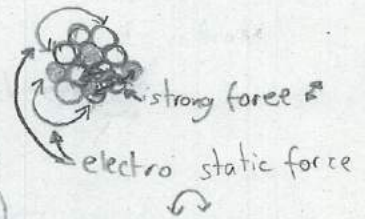 strong force
electro static force